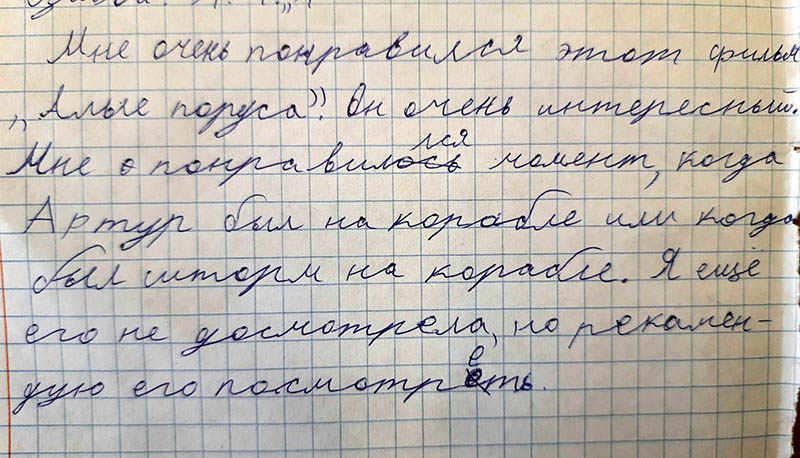 Мне очень понравился этот фильм
„Алые поруса”. Он очень интересный.
Мне понравился момент, когда
Артур был на корабле или когда
был шторм на корабле. Я ещё
его не досмотрела, но рекамен-
дую его посмотреть.